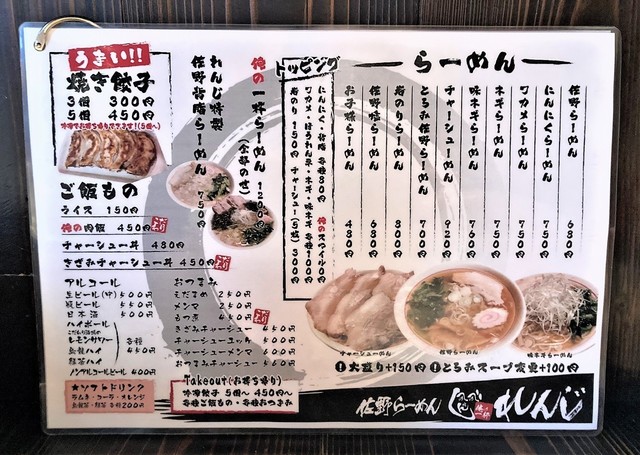 らーめん
佐野らーめん 630円
にんにくらーめん 750円
ワカメらーめん 750円
ネギらーめん 750円
味ネギらーめん 750円
チャーシューめん 920円
とろみ佐野らーめん 700円
岩のりらーめん 800円
佐野背脂らーめん 680円
お子様らーめん 480円
トッピング
俺の一杯らーめん 1200円
(全部のせ)
れんじ特製
佐野背脂らーめん 750円
うまい!!
焼き餃子
3個 300円
5個 450円
ご飯もの
ライス 150円
俺の肉飯 450円
チャーシュー丼 480円
きざみチャーシュー丼 450円
アルコール
生ビール(中) 500円
瓶ビール 550円
日本酒 500円
ハイボール
レモンサワー
烏龍ハイ
緑茶ハイ
各種 450円
ノンアルコールビール 400円
おつまみ
えだまめ 250円
メンマ 250円
もつ煮 400円
きざみチャーシュー 450円
チャーシューエッグ 500円
チャーシューメンマ 600円
おつまみチャーシュー 600円
★ソフトドリンク
ラムネ・コーラ・オレンジ
烏龍茶・緑茶 各種200円
Takeout(お持ち帰り)
冷凍餃子 5個〜 450円〜
各種ご飯もの・各種おつまみ
チャーシューめん
佐野らーめん
味ネギらーめん
大盛り+150円
とろみスープ変更+100円
佐野らーめん れんじ